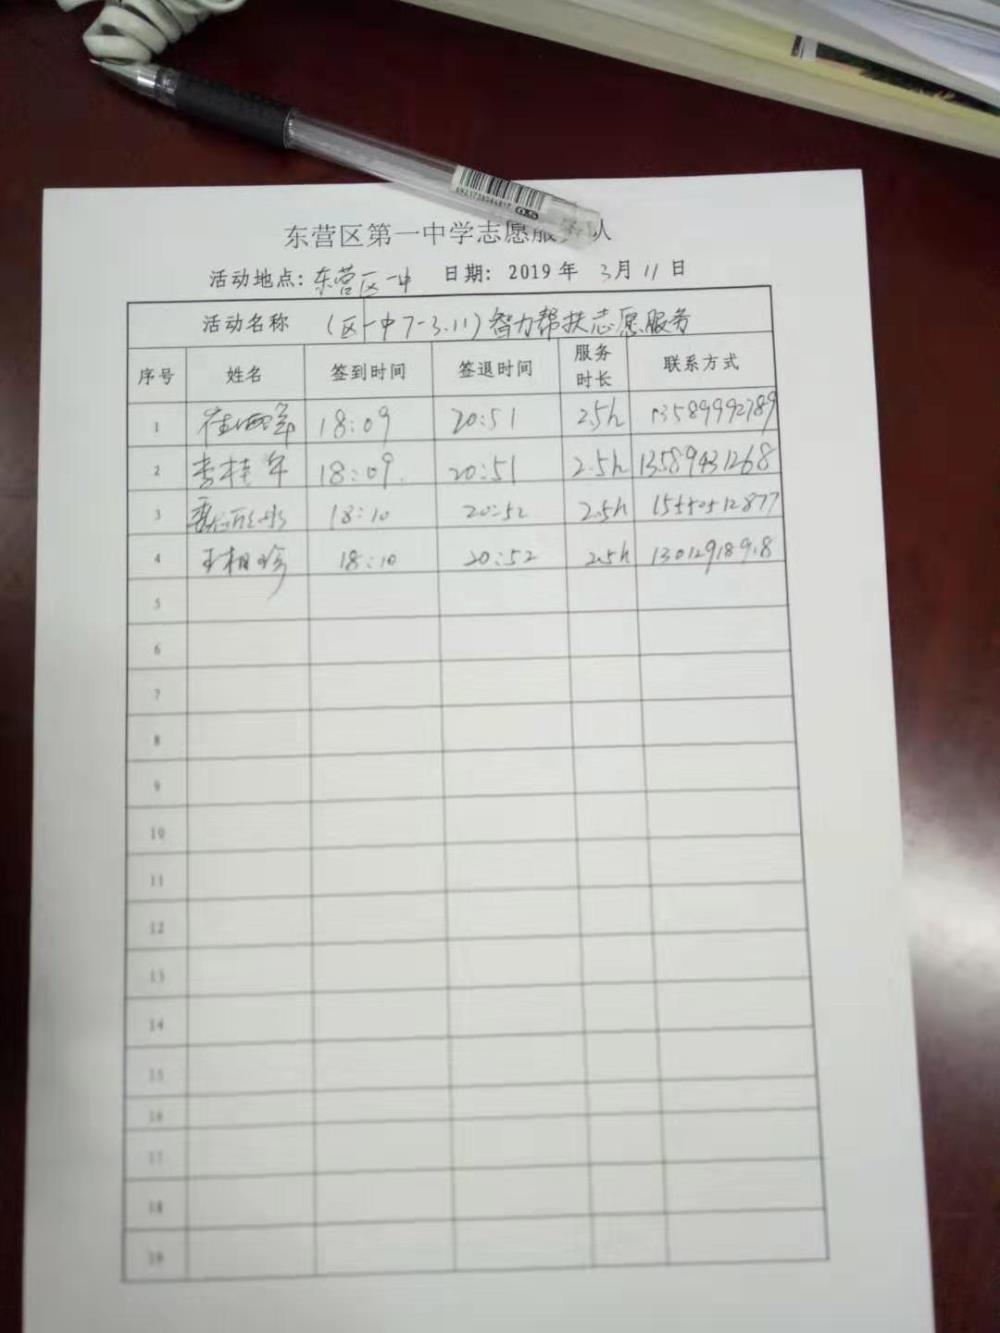 东营区第一中学志愿服务队
活动地点: 东营区一中 日期: 2019 年 3月 11 日
活动名称 (区一中7-3.11)智力帮扶志愿服务
序号 姓名 签到时间 签退时间 服务时长 联系方式
1 18:09 20:51 2.5h 13589992789
2 李桂年 18:09. 20:51 2.5h 13589431268
3 18:10 20:52 2.5h
4 王相珍 18:10 20:52 2.5h 13012918918
5
6
7
8
9
10
11
12
13
14
15
16
17
18
19
0.5